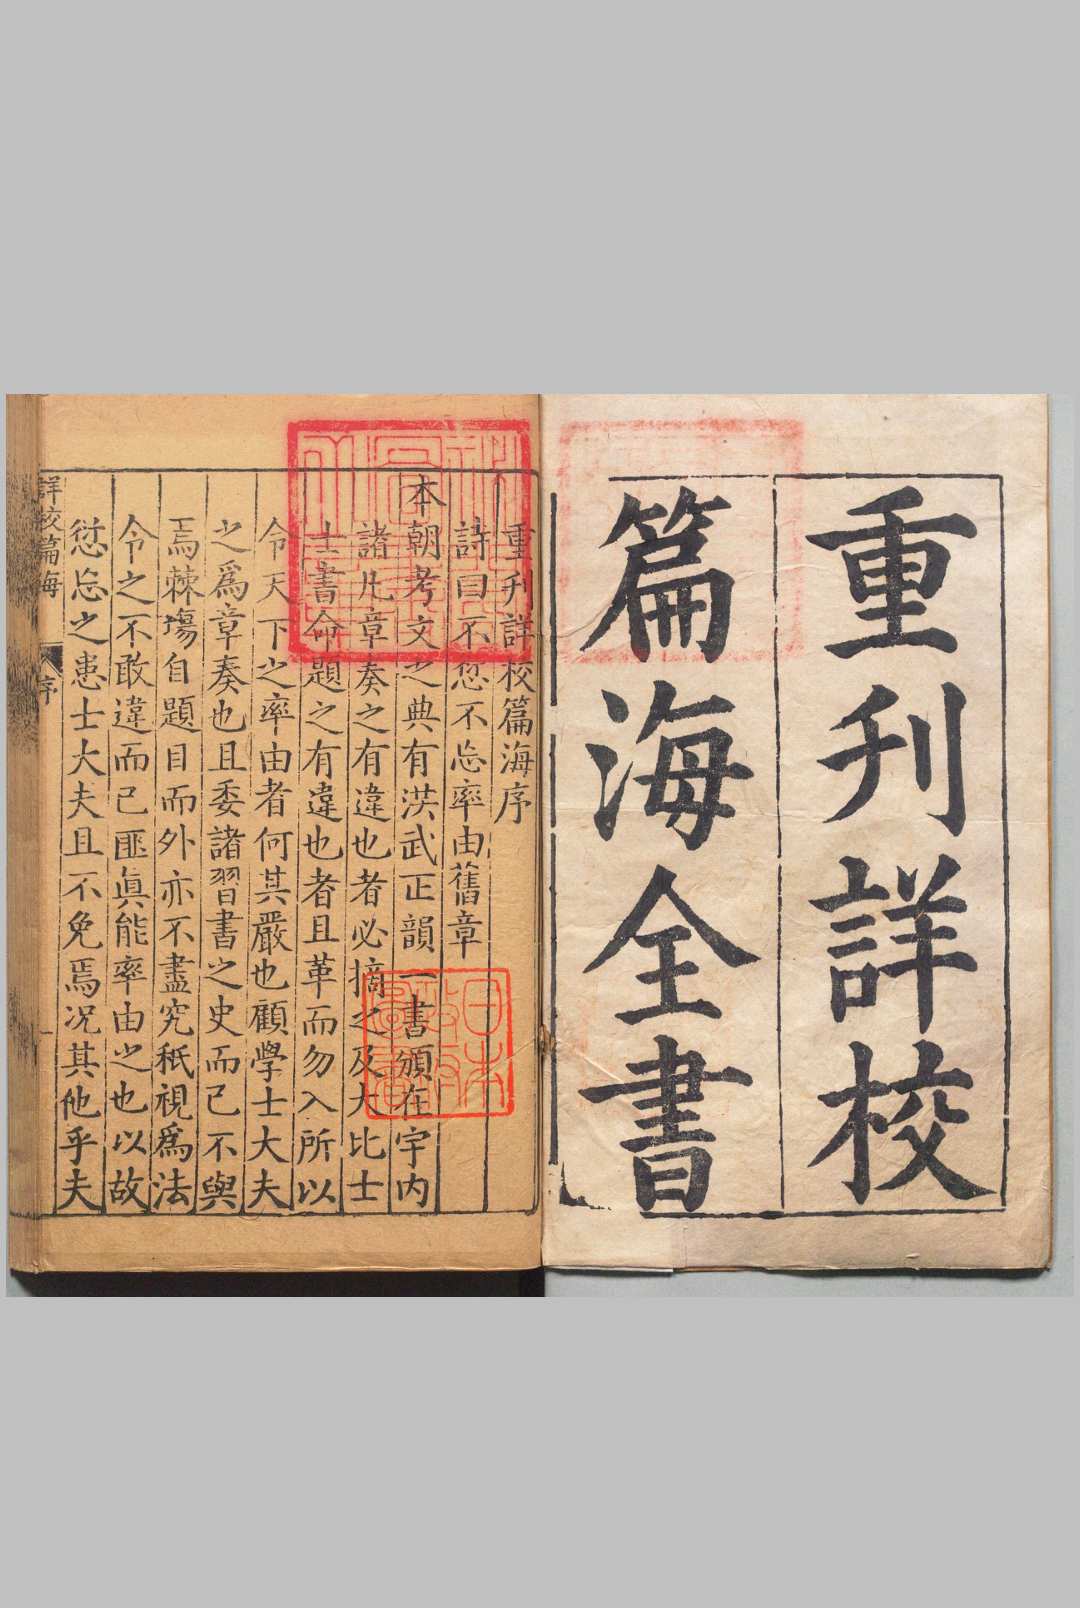 重刋詳校
篇海全書
重刋詳校篇海序
詩曰不愆不忘率由舊章
本朝考文之典有洪武正韻一書頒在宇内
諸凡章奏之有違也者必摘之及大比士
士書命題之有違也者且革而勿入所以
令天下之率由者何其嚴也顧學士大夫
之爲章奏也且委諸習書之史而已不與
焉棘場自題目而外亦不盡究秖視爲法
令之不敢違而已匪眞能率由之也以故
愆忘之患士大夫且不免焉况其他乎夫
詳校篇海
序
一
日本